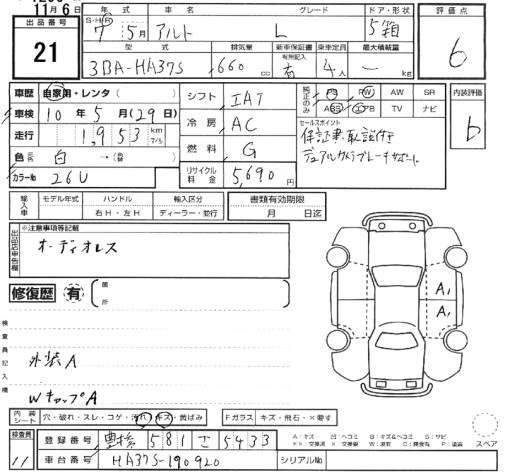 11月6日
出品番号
21
年式 車名 グレード ドア・形状
S・H・R 7年 5月 アルト L 5 箱
型式 排気量 新車保証書 乗車定員 最大積載量
有無記入
3BA-HA37S 660cc 有 4人 — kg
評価点
6
車歴 自家用・レンタ( )
車検 10年5月(29日)
走行 1,953 km マイル
色 白 →( )
カラーNo 26U
シフト IAT
冷房 AC
燃料 G
リサイクル料金 5,690円
純正のみ PS PW AW SR
ABS エアB TV ナビ
セールスポイント
保証書、取説付き
デュアルカメラブレーキサポート
内装評価
b
輸入車 モデル年式 ハンドル 輸入区分
右H・左H ディーラー・並行
書類有効期限
月 日迄
出品店申告欄
※注意事項等記載
オーディオレス
修復歴 有 箇所
検査員記入欄
外装A
WキャップA
A1
A1
内装シート 穴・破れ・スレ・コゲ・汚れ・キズ・黄ばみ
Fガラス キズ・飛石・×要す
検査員
11
登録番号 豊橋 581 さ 5433
車台番号 HA37S-190920
シリアルNo
A:キズ U:ヘコミ B:キズ&ヘコミ S:サビ
スペア